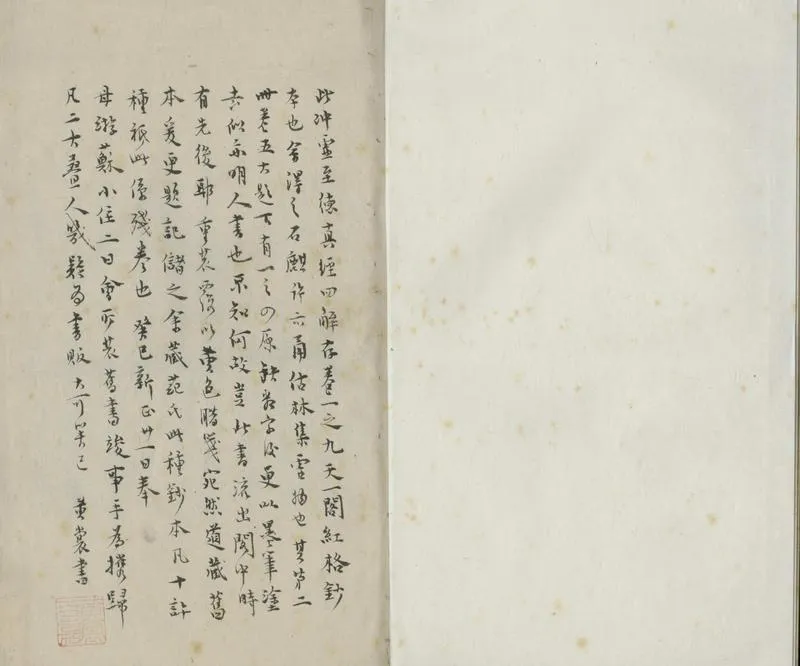 此冲虚至德真經四解存卷一之九天一閣紅格鈔
本也余得之石麒許亦甬估林集虚物也其第二
冊卷五大題下有一之四原缺若字後更以墨筆塗
去似亦明人書也不知何故豈此書流出閣中時
有先後耶重裝覆以黄色腊箋宛然道藏舊
本爰更題記儲之余藏范氏此種鈔本凡十許
種祇此係殘卷也癸巳新正廿一日奉
母游蘇小住二日會所裝舊書竣事手為攜歸
凡二大疊人幾疑為書販大可笑已 黄裳書